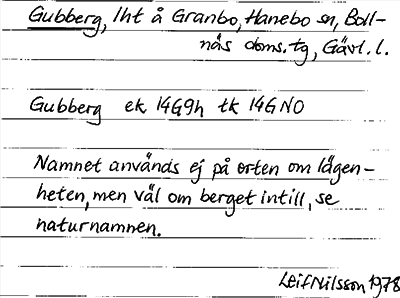 Gubberg, lht å Granbo, Hanebo sn, Boll-
näs doms. tg, Gävl. l.
Gubberg ek 14G9h tk 14GNO
Namnet används ej på orten om lägen-
heten, men väl om berget intill, se
naturnamnen.
Leif Nilsson 1978